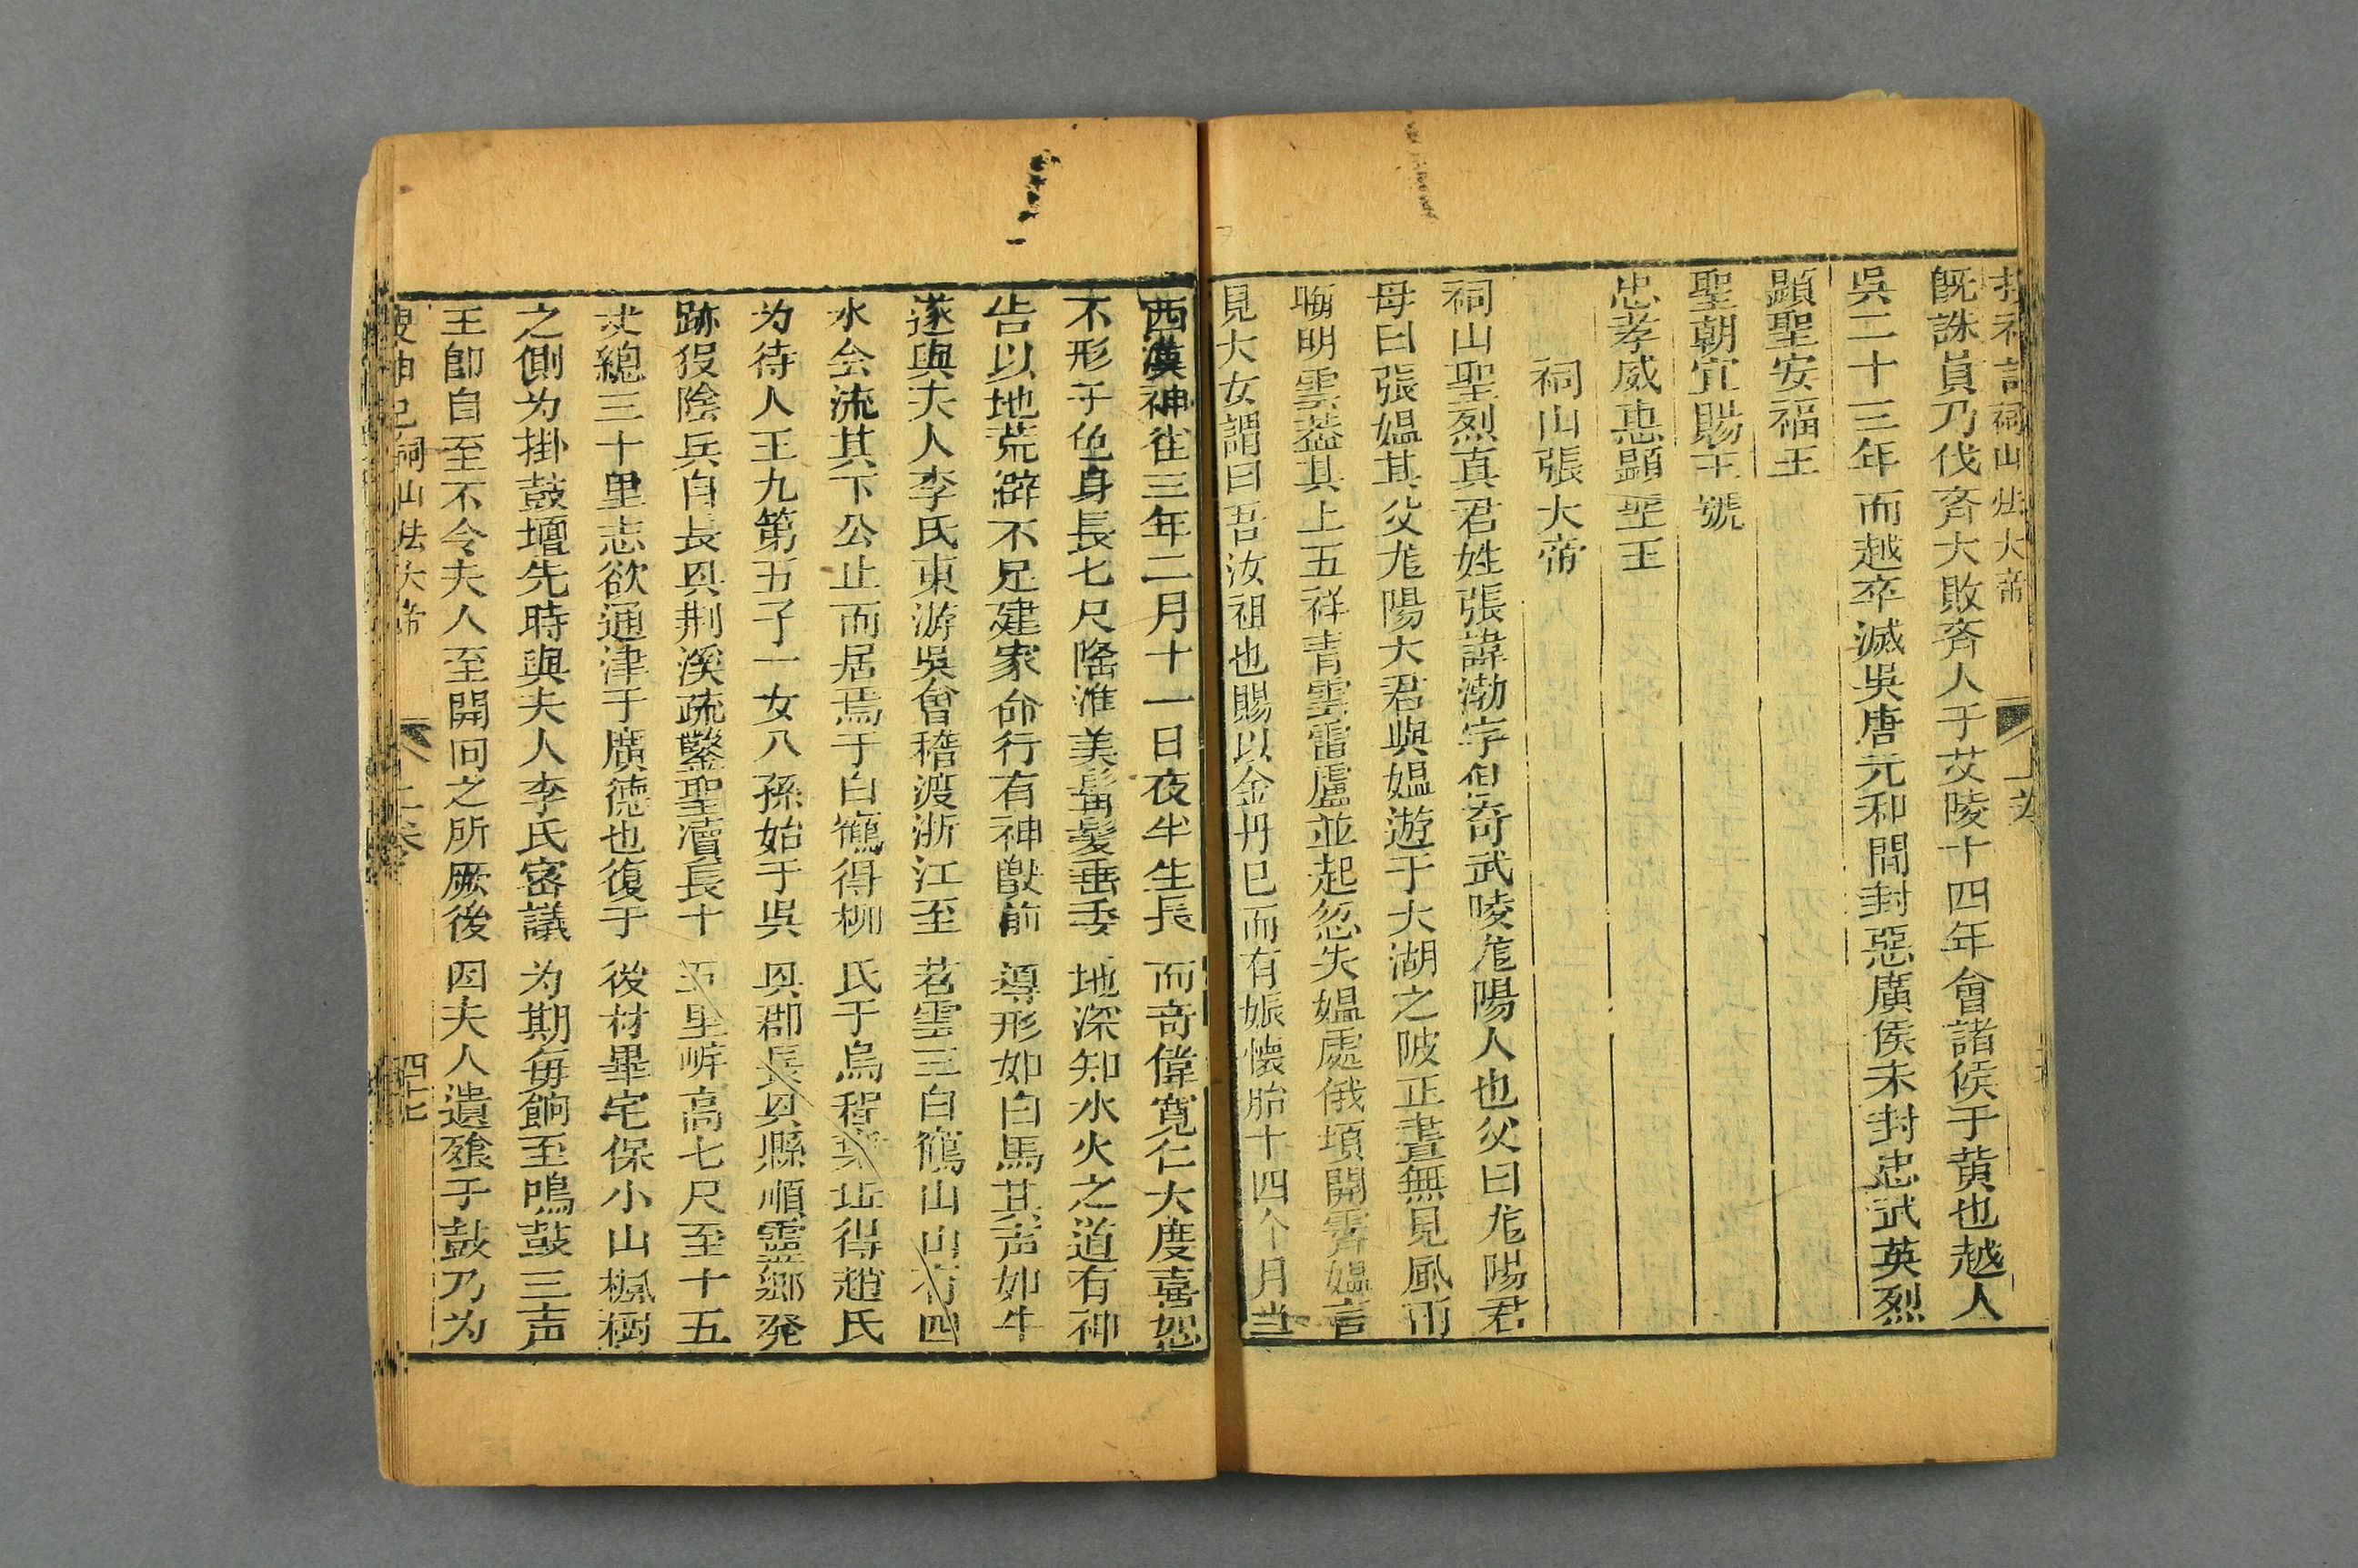 搜神記 祠山張大帝 上卷
既誅員乃伐齊大敗齊人于艾陵十四年會諸侯于黃也越人
吳二十三年而越卒滅吳唐元和間封惡廣侯末封忠武英烈
顯聖安福王
聖朝宜賜王號
忠孝威惠顯聖王
祠山張大帝
祠山聖烈真君姓張諱渤字伯奇武陵龍陽人也父曰龍陽君
母曰張媼其父龍陽大君與媼遊于大湖之陂正晝無見風雨
晦明雲葢其上五祥青雲雷盧並起忽失媼處俄頃開霽媼言
見大女謂曰吾汝祖也賜以金丹已而有娠懷胎十四个月当
西漢神雀三年二月十一日夜半生長而奇偉寬仁大度喜怒
不形于色身長七尺隆准美髯髮垂委地深知水火之道有神
告以地荒僻不足建家命行有神獸前導形如白馬其声如牛
遂與夫人李氏東游吳會稽渡浙江至苕雲三白鶴山山有四
水会流其下公止而居焉于白鶴得柳氏于烏程桑坵得趙氏
为待人王九第五子一女八孫始于吳興郡長興縣順靈鄉発
跡役陰兵自長興荆溪疏鑿聖瀆長十五里岸高七尺至十五
丈總三十里志欲通津于廣德也復于後村畢宅保小山楓樹
之側为掛鼓壇先時與夫人李氏密議为期每餉至鳴鼓三声
王卽自至不令夫人至開河之所厥後因夫人遺飱于鼓乃为
搜神記 祠山張大帝 上卷 四七